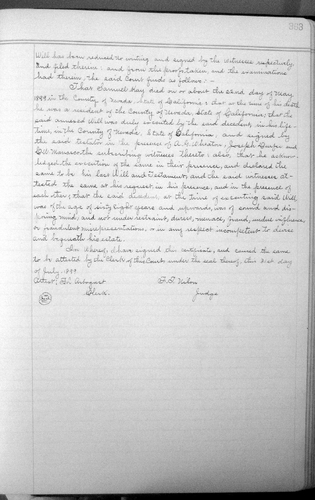 383
Will has been reduced to writing and signed by the witnesses respectively
and filed therein; and from the proofs taken, and the examinations
had therein, the said Court finds as follows:-
That Samuel Kay died on or about the 22nd day of May
1899 in the County of Nevada, State of California; that at the time of his death
he was a resident of the County of Nevada, State of California, that the
said annexed Will was duly executed by the said decedent, in his life
time, in the County of Nevada, State of California, and signed by
the said testator in the presence of A. K. Joseph and
the subscribing witnesses thereto; also, that he acknow-
ledged the execution of the same in their presence, and declared the
same to be his last Will and Testament, and the said witnesses at-
tested the same at his request, in his presence, and in the presence of
each other; that the said decedent, at the time of executing said Will
was of the age of sixty eight years and upwards, was of sound and dis-
posing mind, and not under restraint, duress, menace, fraud, undue influence,
or fraudulent misrepresentations, or in any respect incompetent to devise
and bequeath his estate.
In Witness Whereof, I have signed this certificate, and caused the same
to be attested by the Clerk of this Court under the seal thereof, this day
of July 1899
Attest: F. L. Arbogast F. T. Nilon
Clerk. Judge